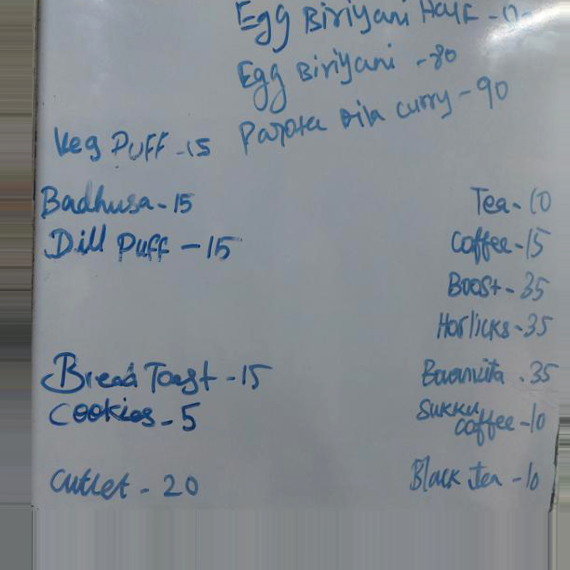 Egg Biriyani Half -
Egg Biriyani -80
Parota curry -90
Veg Puff -15
Badhusa -15
Dill Puff -15
Bread Toast -15
Cookies -5
Cutlet -20
Tea -10
Coffee -15
Boost -35
Horlicks -35
35
Sukku coffee -10
Black Tea -10